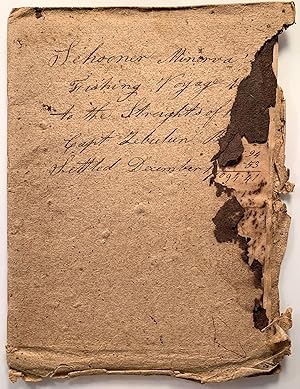 Schooner Minerva
Fishing Voyage
to the Straights of
Capt Zebulun
Settled December